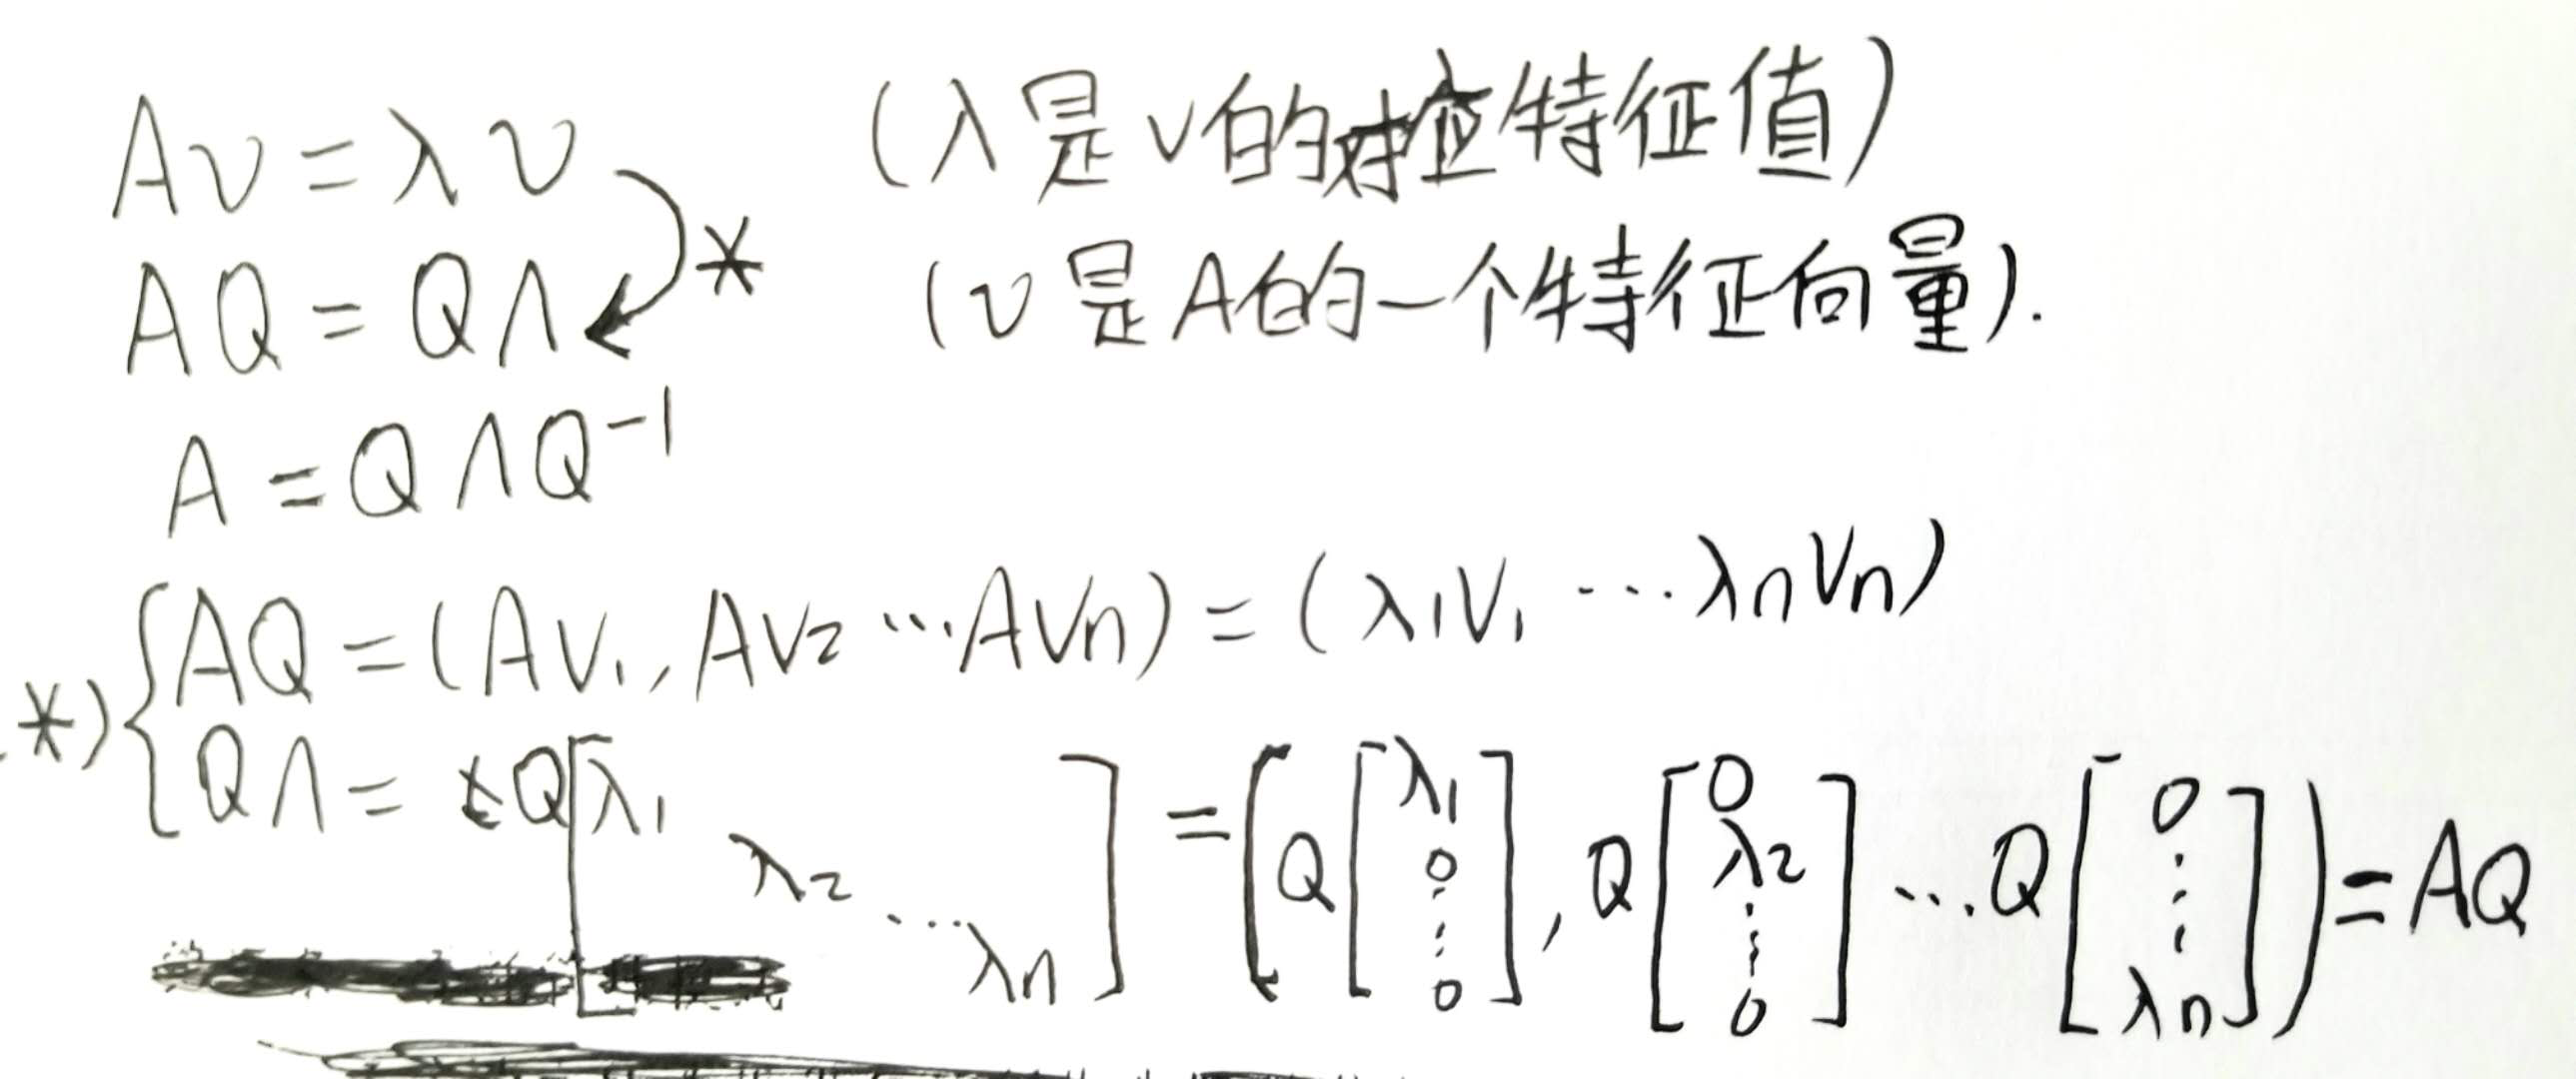 Av = λv (λ是v的对应特征值)
AQ = QΛ * (v是A的一个特征向量).
A = QΛQ⁻¹
*) { AQ = (Av₁, Av₂ ... Avₙ) = (λ₁v₁ ... λₙvₙ)
QΛ = Q [λ₁ λ₂ ... λₙ] = (Q [λ₁ 0 ⋮ 0], Q [0 λ₂ ⋮ 0] ... Q [0 ⋮ λₙ]) = AQ